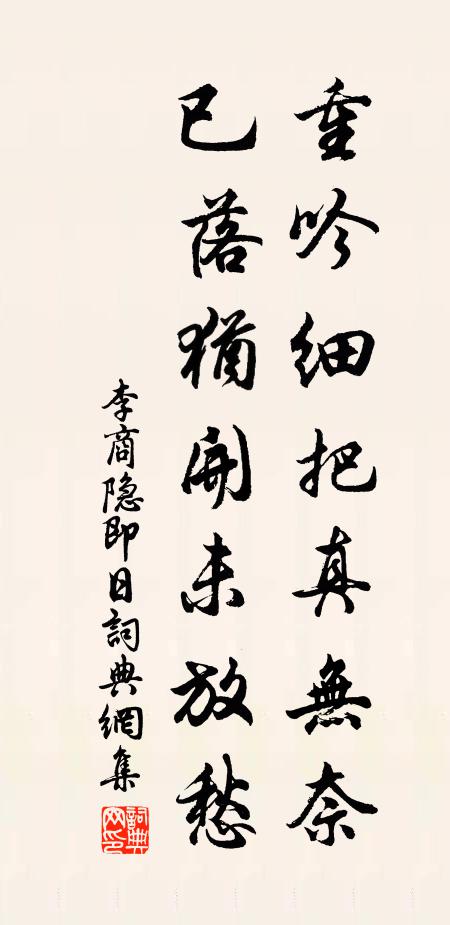 重吟细把真無奈
已落猶開未放愁
李商隐即日詞典網集
詞典
网印